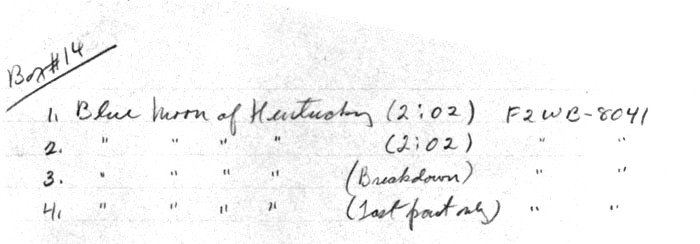 Box #14
1. Blue Moon of Kentucky (2:02) F2WB-8041
2. " " " " (2:02) " "
3. " " " " (Breakdown) " "
4. " " " " (Last part only) " "